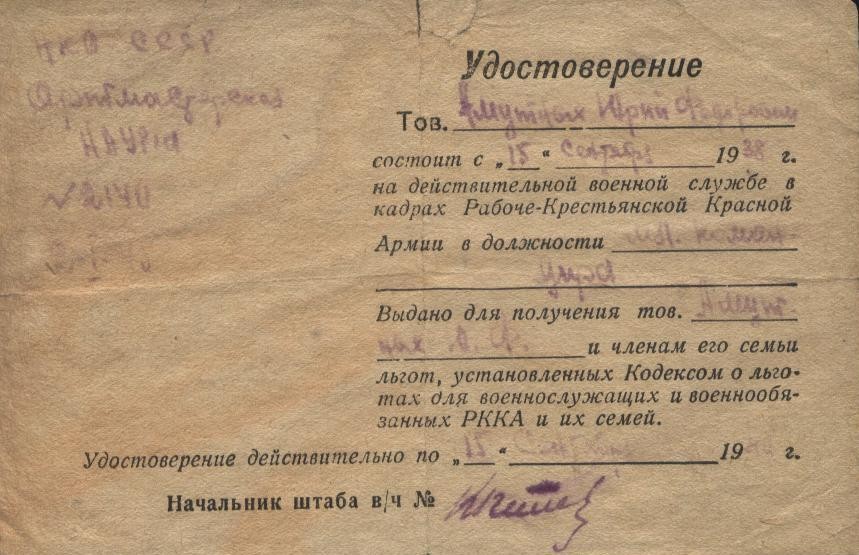 НКО СССР
№ 2140
Удостоверение
Тов. Юрий Федорович
состоит с „15“ сентября 1938 г.
на действительной военной службе в
кадрах Рабоче-Крестьянской Красной
Армии в должности мл. коман-
дира
Выдано для получения тов.
и членам его семьи
льгот, установленных Кодексом о льго-
тах для военнослужащих и военнообя-
занных РККА и их семей.
Удостоверение действительно по „15“ 19 г.
Начальник штаба в/ч №